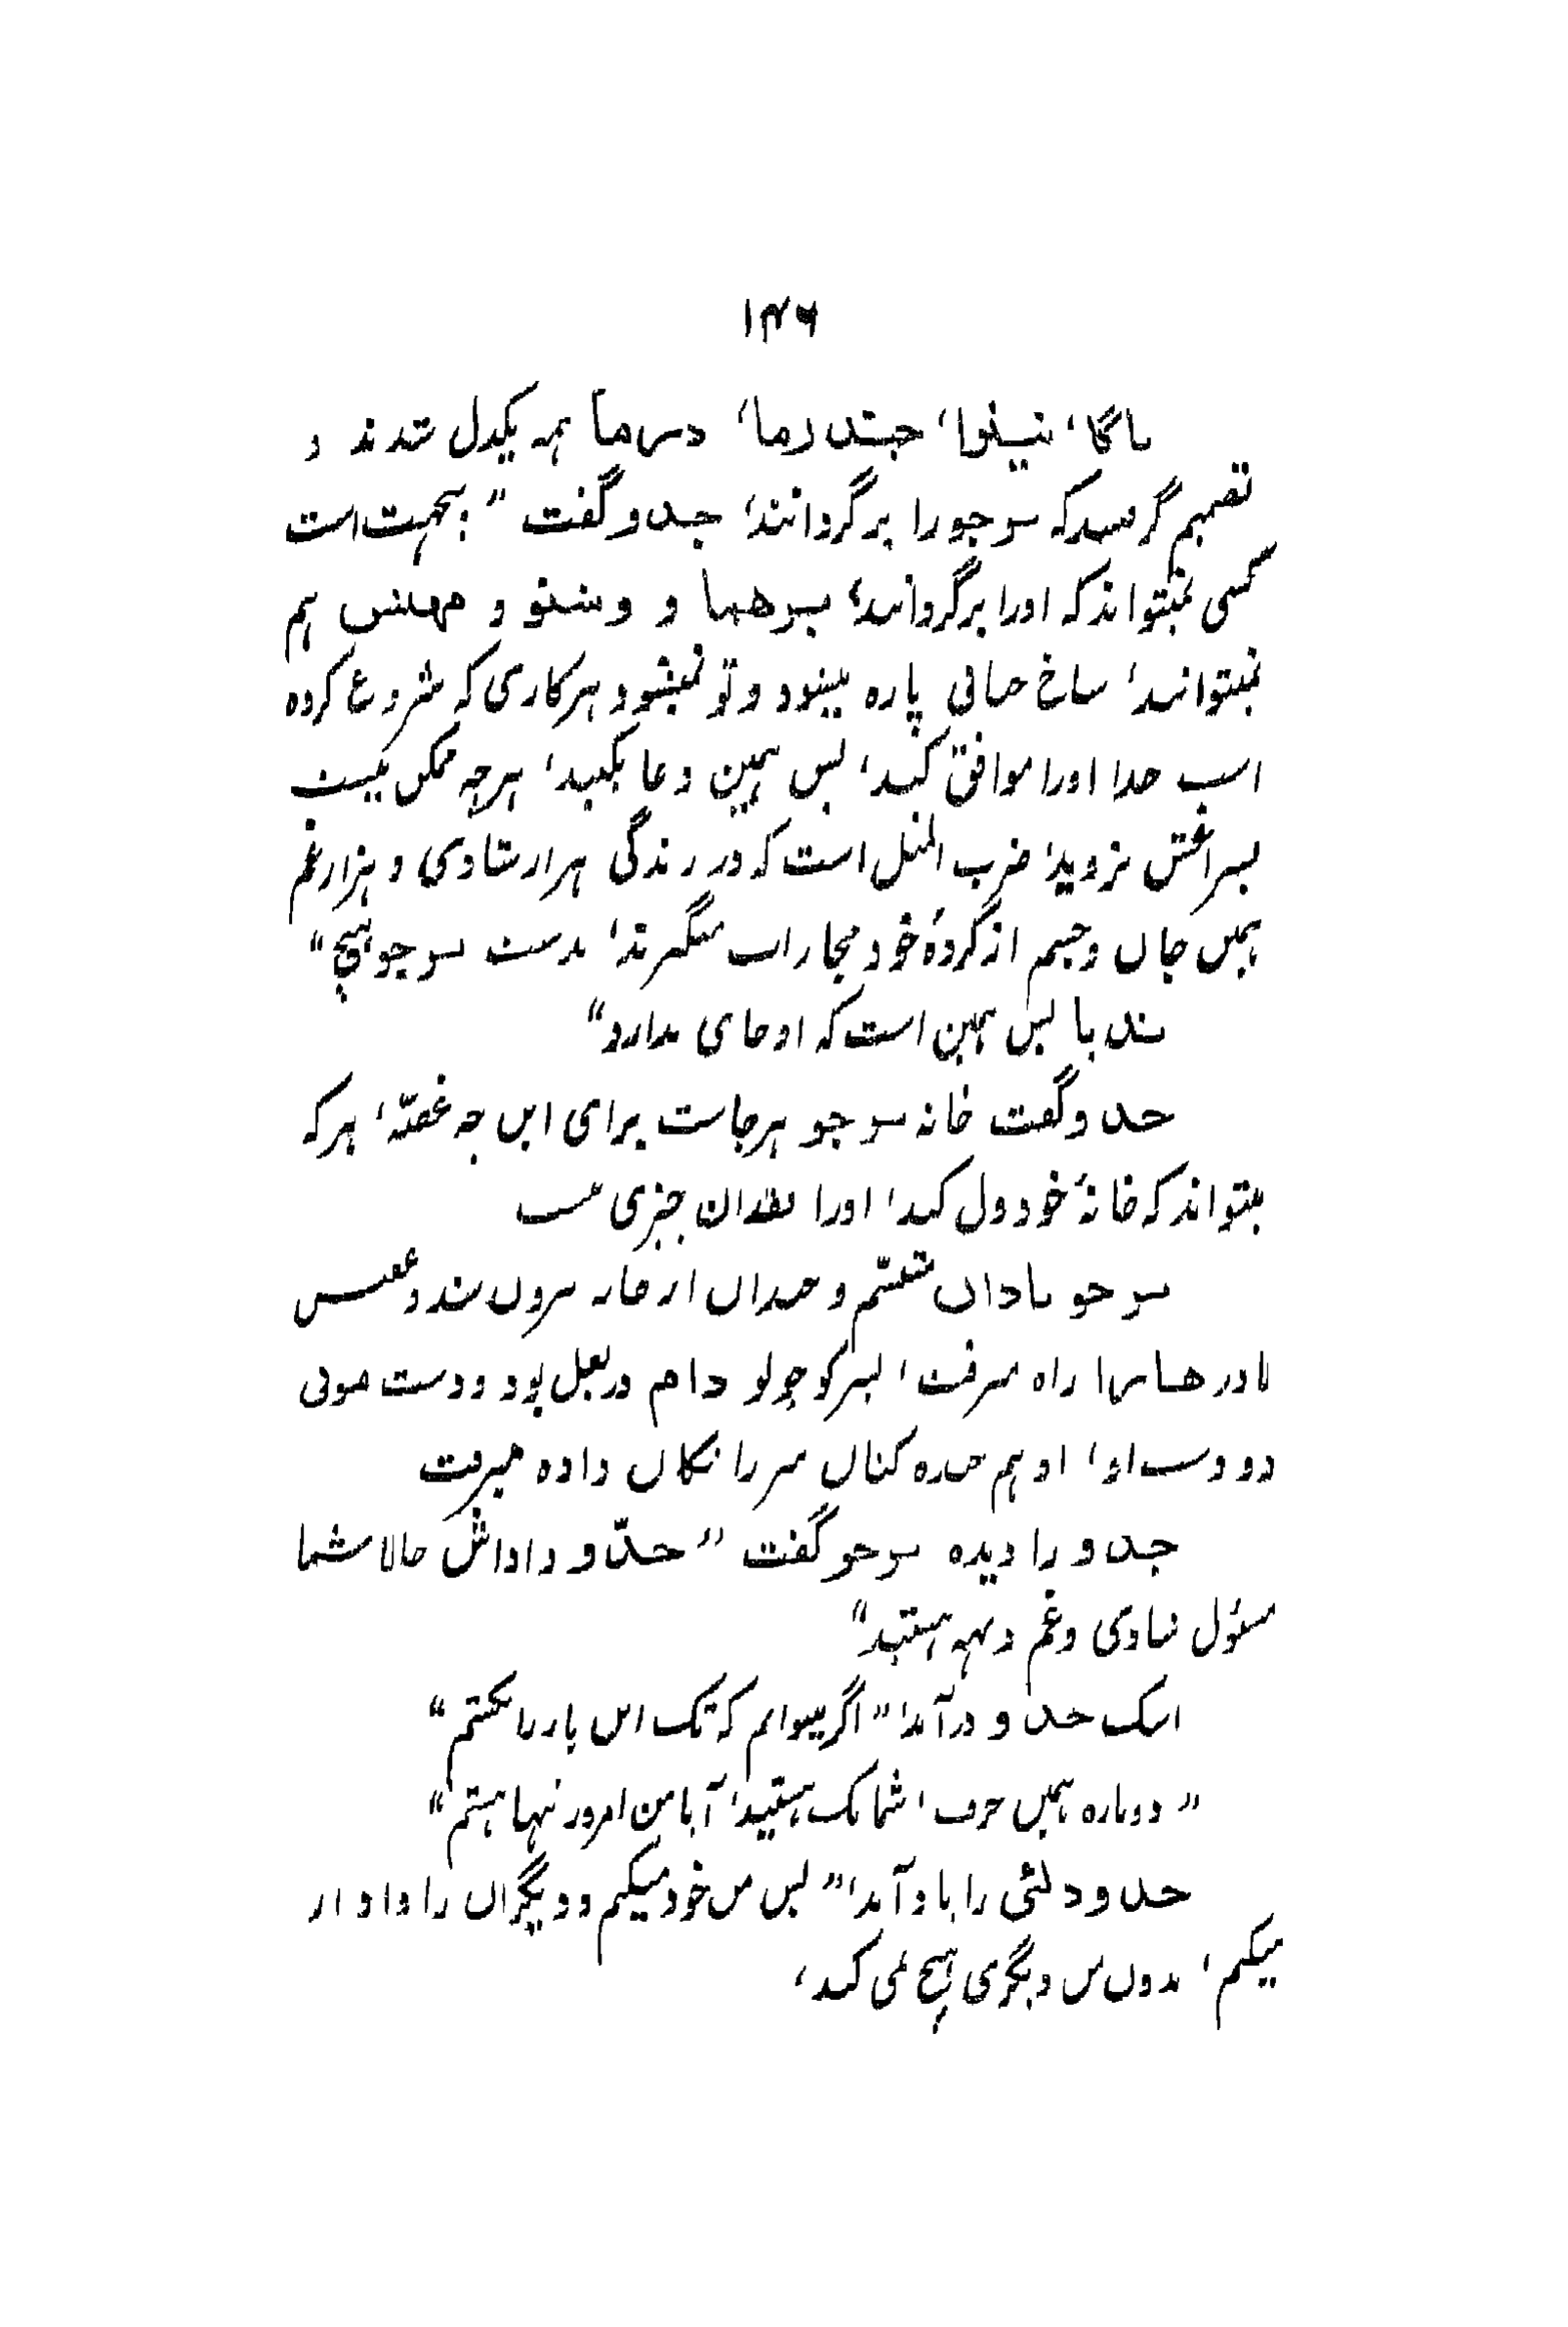 ۱۴۶
ناگا، نیلوا، جتندرما، دس ما همه یکدل شدند و
تصمیم گرفتند که سرجو را برگردانند، جدو گفت "بجهت است
کسی نمیتواند که اورا برگرداند، برهما و وشنو و مهیش هم
نمیتوانند، شاخ صافی پاره میشود و تو نمیشود هر کاری که شروع کرده
است خدا اورا موافق کند، پس همین دعا بکنید، هر چه ممکن نیست
بسراغش نروید، ضرب المثل است که در زندگی هزار شادی و هزار غم
همین جان و جسم از کردهٔ خود مجازات میگیرند، بدست سرجو هیچ"
پس همین است که او جای ندارد"
جدو گفت خانه سرجو هر جاست برای این چه غصّه، هر که
بتواند که خانهٔ خود ول کند، اورا فقدان چیزی نیست
سرجو و خندان از خانه بیرون شد و عقبش
راه میرفت، پسر کوچولو در بغل بود و دست
دو دست او، او هم خنده کنان سر را تکان داده میرفت
جدو را دیده سرجو گفت "جدّو داداش حالا شما
مسؤل شادی و غم و همه هستید"
اشک جدو در آمد، "اگر میتوانم که تک این بار را بکشم"
"دوباره همین حرف، شما تک هستید، آیا من امروز تنها هستم"
جدو دلئی را یاد آمد، "پس من خود میکنم و دیگران را وادار
میکنم، بدون من دیگری هیچ نمی کند،